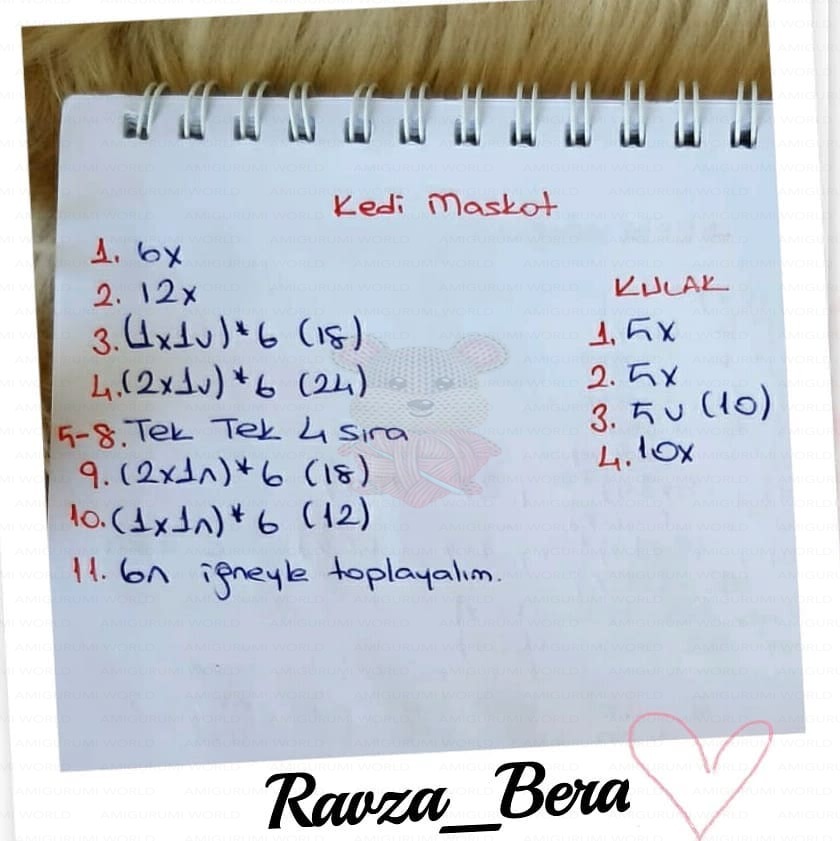 Kedi Maskot
1. 6x
2. 12x
3. (1x1v)*6 (18)
4. (2x1v)*6 (24)
5-8. Tek Tek 4 sıra
9. (2x1ʌ)*6 (18)
10. (1x1ʌ)*6 (12)
11. 6ʌ iğneyle toplayalım.
KULAK
1. 5x
2. 5x
3. 5v (10)
4. 10x
Ravza_Bera
AMIGURUMI WORLD